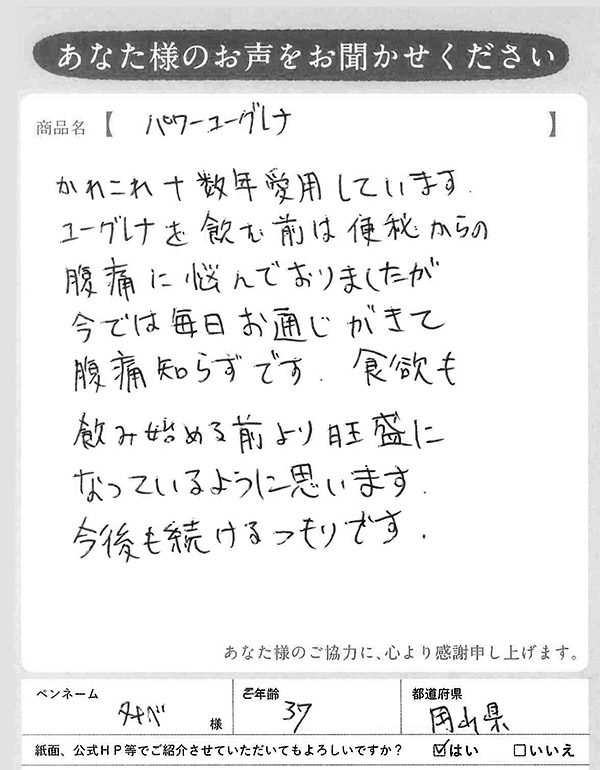 あなた様のお声をお聞かせください
商品名【 パワーユーグレナ 】
かれこれ十数年愛用しています.
ユーグレナを飲む前は便秘からの
腹痛に悩んでおりましたが
今では毎日お通じがきて
腹痛知らずです. 食欲も
飲み始める前より旺盛に
なっているように思います.
今後も続けるつもりです.
あなた様のご協力に、心より感謝申し上げます。
ペンネーム ご年齢 都道府県
タナベ 様 37 岡山県
紙面、公式HP等でご紹介させていただいてもよろしいですか? ☑はい □いいえ